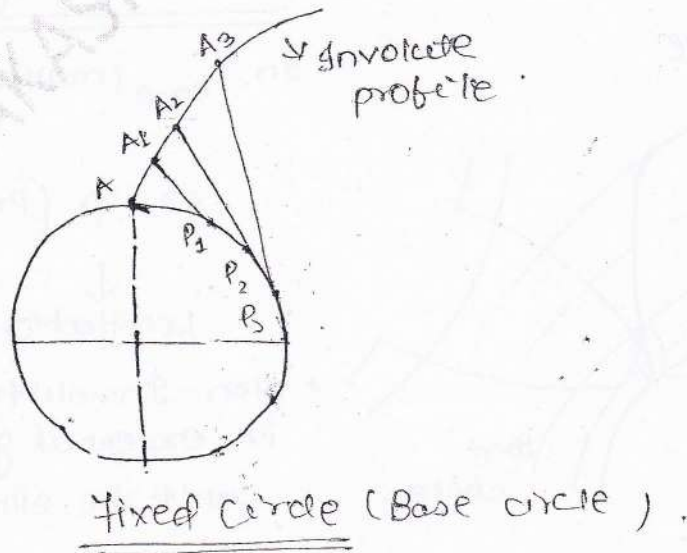 A3
Involute
profile.
A2
A1
A
P1
P2
P3
Fixed Circle (Base circle).